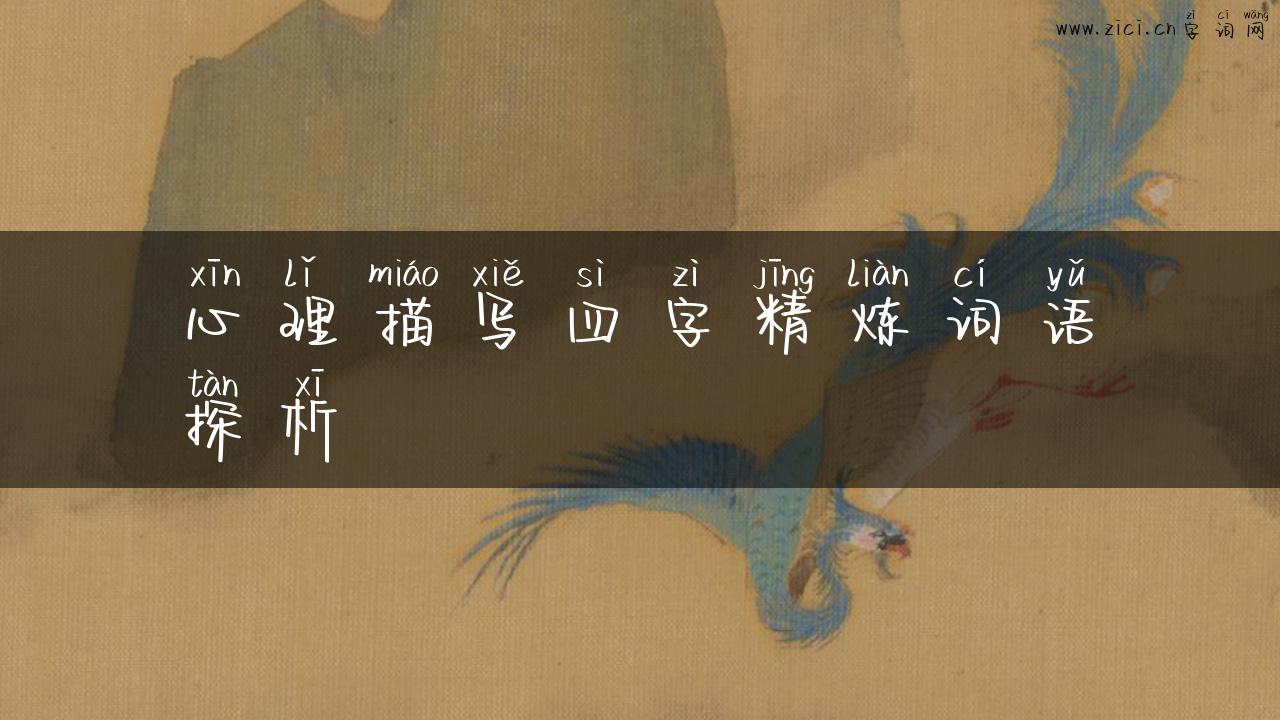 zì cí wǎng
www.zici.cn 字词网
xīn lǐ miáo xiě sì zì jīng liàn cí yǔ
心理描写四字精炼词语
tàn xī
探析